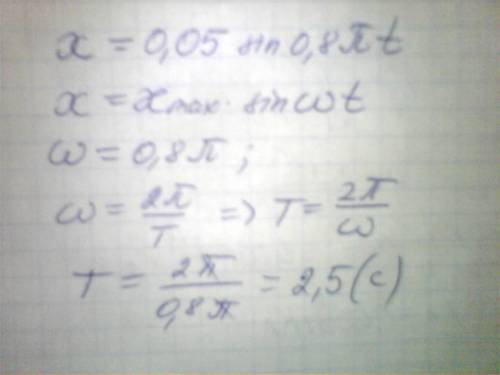 x = 0,05 sin 0,8πt
x = xmax· sin ωt
ω = 0,8π ;
ω = 2π/T => T = 2π/ω
T = 2π/0,8π = 2,5(с)